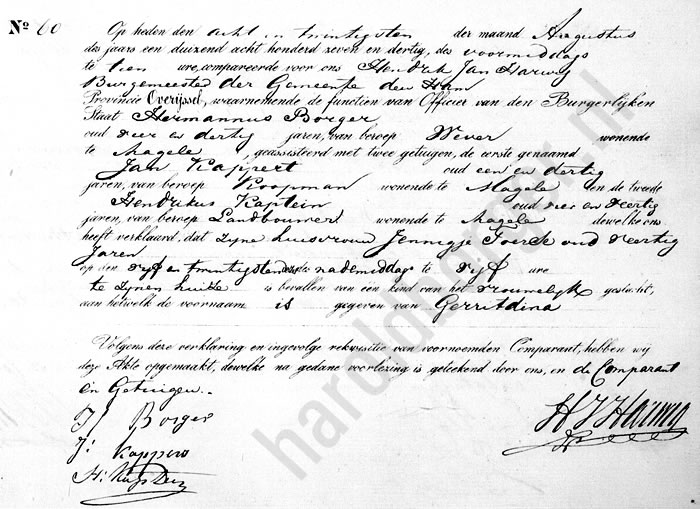 Nº 60
Op heden den acht en twintigsten der maand Augustus
des jaars een duizend acht honderd zeven en dertig, des voormiddags
te tien ure, compareerde voor ons Hendrik Jan Harwig
Burgemeester der Gemeente den Ham
Provincie Overijssel, waarnemende de functiën van Officier van den Burgerlijken
Staat Hermannus Borger
oud vier en dertig jaren, van beroep Wever wonende
te Magele, geässisteerd met twee getuigen, de eerste genaamd
Jan Kappert oud een en dertig
jaren, van beroep Koopman wonende te Magele en de tweede
Hendrikus Kaptein oud vier en veertig
jaren, van beroep Landbouwer wonende te Magele dewelke ons
heeft verklaard, dat zyne huisvrouw Jennigje oud veertig
Jaren
op den vyf en twintigsten des nademiddags te vyf ure
te zynen huize is bevallen van een kind van het vrouwelyk geslacht,
aan hetwelk de voornaam is gegeven van Gerritdina
Volgens deze verklaring en ingevolge rekwisitie van voornoemden Comparant, hebben wij
deze Akte opgemaakt, dewelke na gedane voorlezing is geteekend door ons, en de Comparant
en Getuigen.
Borger
H J Harwig
J: Kappers
H: Kaptein
hardinbgraf.nl